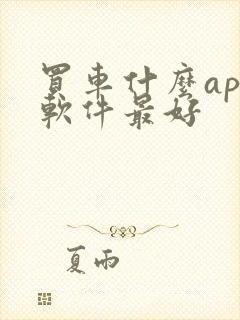 買車什麼ap
軟件最好
夏雨